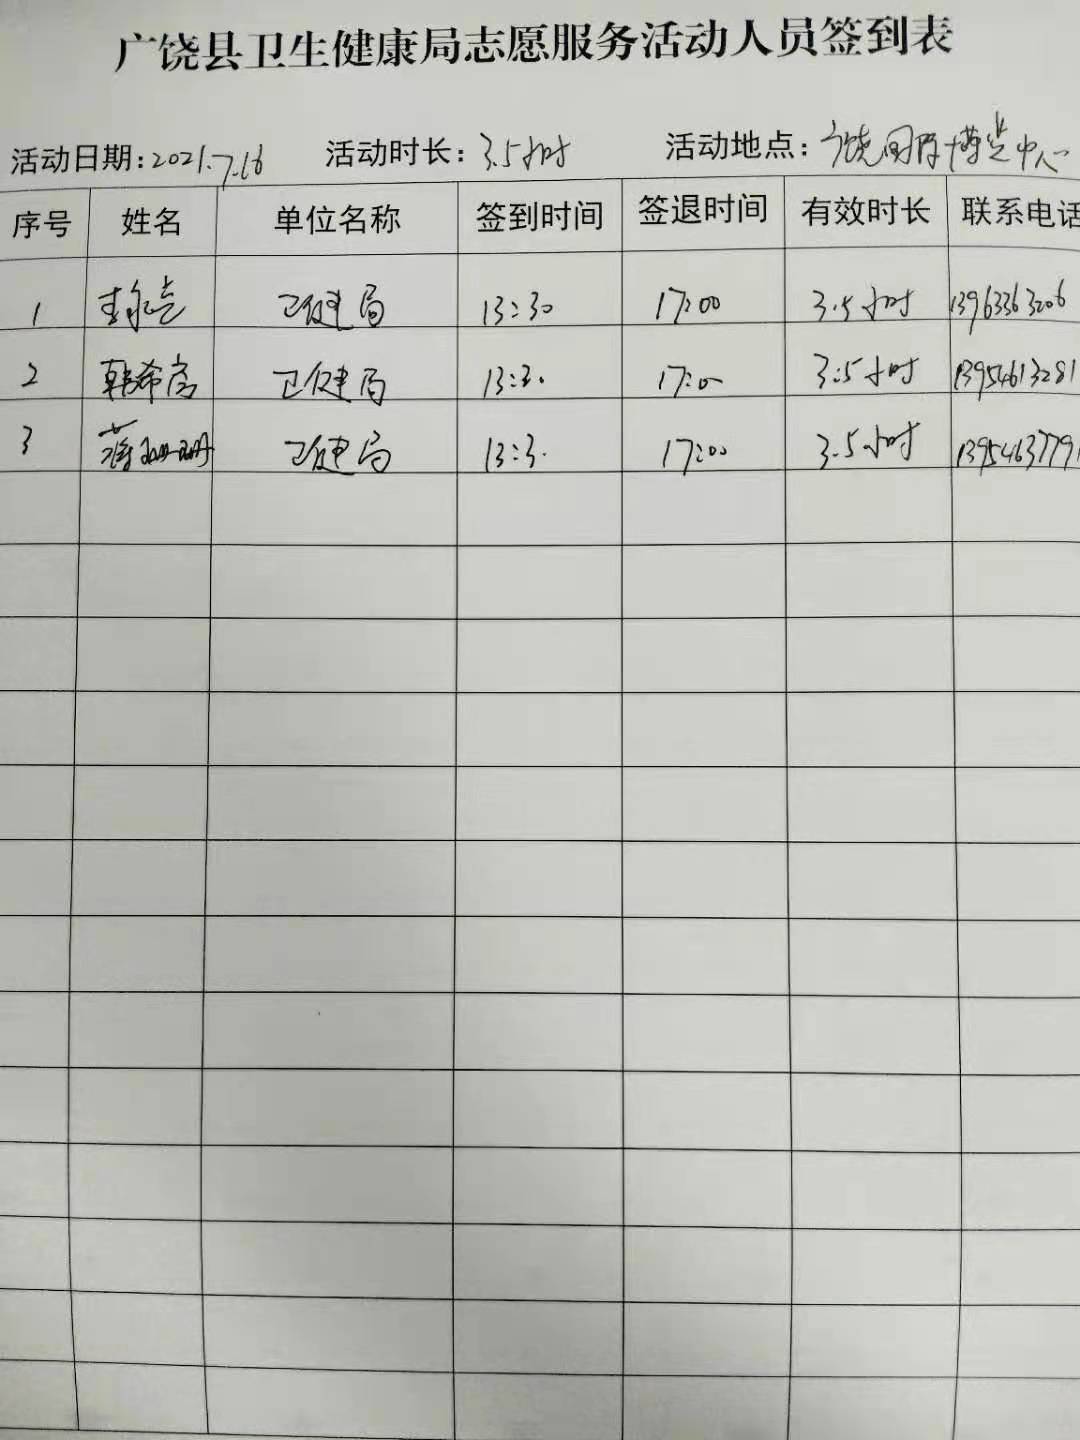 广饶县卫生健康局志愿服务活动人员签到表
活动日期:2021.7.16 活动时长:3.5小时 活动地点:广饶国际博览中心
序号 姓名 单位名称 签到时间 签退时间 有效时长 联系电话
1 卫健局 13:30 17:00 3.5小时 13963363206
2 韩希 卫健局 13:30 17:00 3.5小时 13954613281
3 蒋珊珊 卫健局 13:30 17:00 3.5小时 1395463779